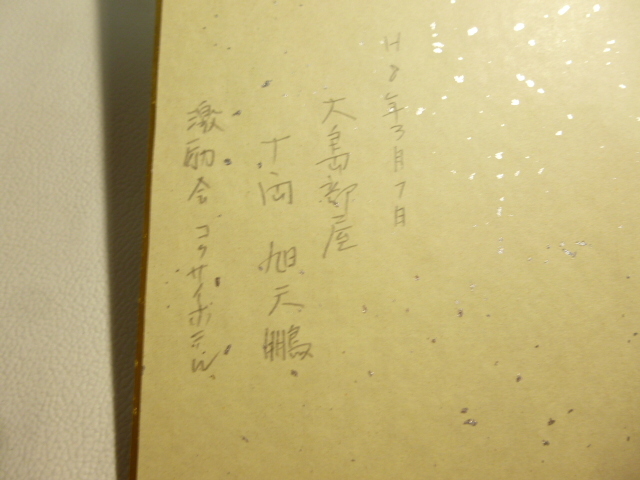 H8年3月7日
大島部屋
十両 旭天鵬
激励会 コクサイホテル